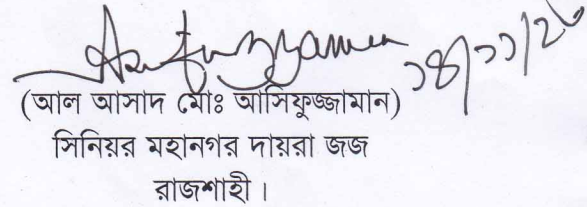 (আল আসাদ মোঃ আসিফুজ্জামান)
সিনিয়র মহানগর দায়রা জজ
রাজশাহী।